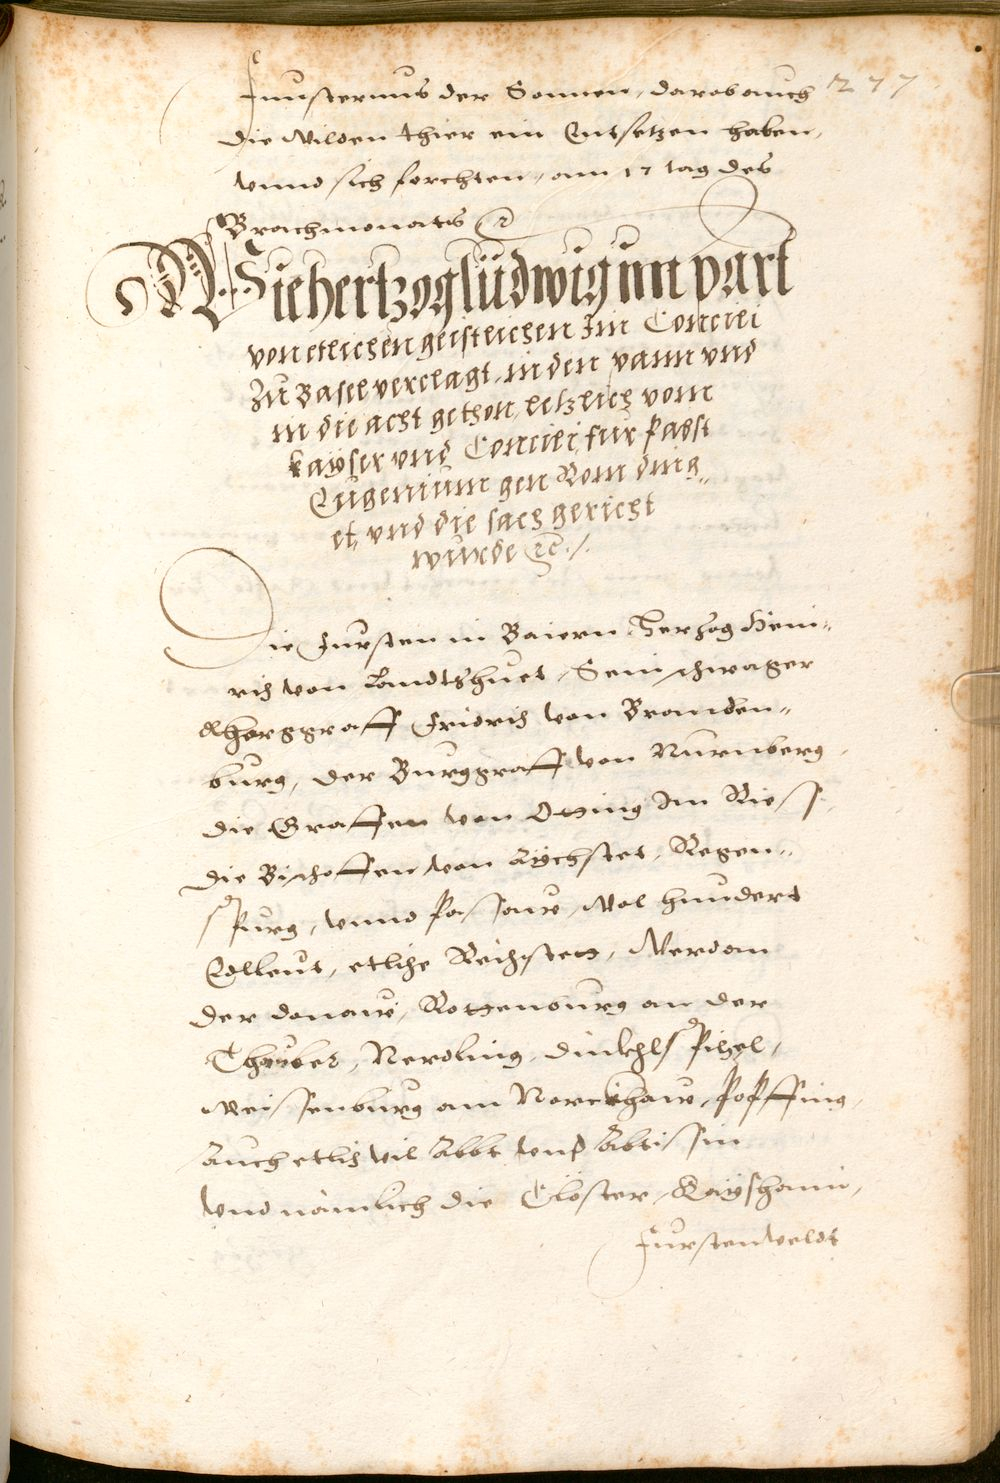 Finsternus der Sonnen, darob auch 277
die Wilden thier ein Entsetzen haben,
vnnd sich forchten, am 17 tag des
Brachmonats ꝛc
Wie hertzog ludwig im part
von etlichen geistlichen Im Concili
Zu Basel verclagt, in den pann vnd
in die acht gethon, letzlich vom
kayser vnd Concili, fur Pabst
Eugenium gen Rom ding„
et, vnd die sach gericht
wurde ꝛc ./.
Die Fursten in Baiern Hertzog Hein„
rich von Landtshuet, Sein schwager
Marggraff Fridrich von Branden„
burg, der Burggraff von Nurnberg,
die Graffen von Otting Im Riess,
die Bischoffen von Aychstet, Regen„
spurg, vnnd Passaw, Wol hundert
Edlleut, etliche Reichstett, Werd an
der donaw, Rottenburg an der
Thauber, Nerdling, dinkhlspihel,
Weissenburg am Norckhaw, Popffing,
Auch etlich vil Abbt vnd Abtissin
vnd nämlich die Clöster, Kayshaim,
Furstenveldt